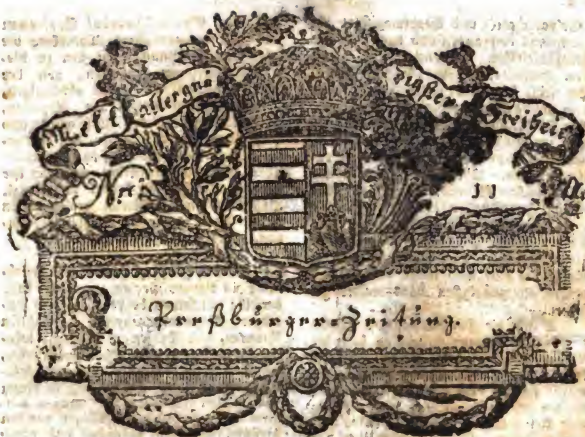 allergnä digster Freiheit
Preßburger Zeitung.